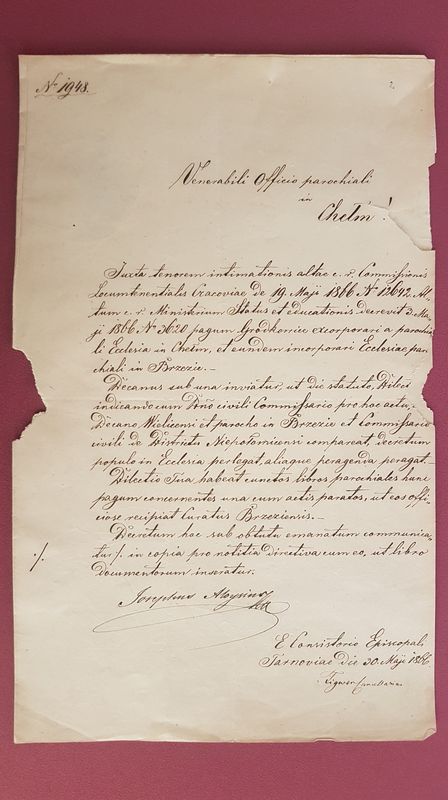 N° 1948.
Venerabili Officio parochiali
in
Chełm!
Juxta tenorem intimationis altae c. r. Commissionis
Locumtenentialis Cracoviae de 19 Maji 1866 N° 12642 Al-
tum c. r. Ministerium Status et educationis decrevit 3 Ma-
ji 1866 N° 3620 pagum Grodkowice excorporari a parochia-
li Ecclesia in Chełm, et eundem incorporari Ecclesiae paro-
chiali in Brzezie. –
Decanus sub una inviatur, ut die statuto, Dilect
indicando cum Dño civili Commissario pro hoc actu,
Decano Wielicensi et parocho in Brzezie et Commissario
civili de Districtu Niepołomicensi compareat decretum
populo in Ecclesia perlegat, aliaque peragenda peragat.
Dilectio Tua habeat cunctos libros parochiales hunc
pagum concernentes una cum actis paratos, ut eos offi-
ciose recipiat Curatus Brzeziensis. –
Decretum hac sub obtutu emanatum communica-
tur ·/. in copia pro notitia directiva cum eo, ut libro
·/.
documentorum inseratur.
Josephus Aloysius
E Consistorio Episcopali
Tarnoviae die 30 Maji 1866
Cancellarius